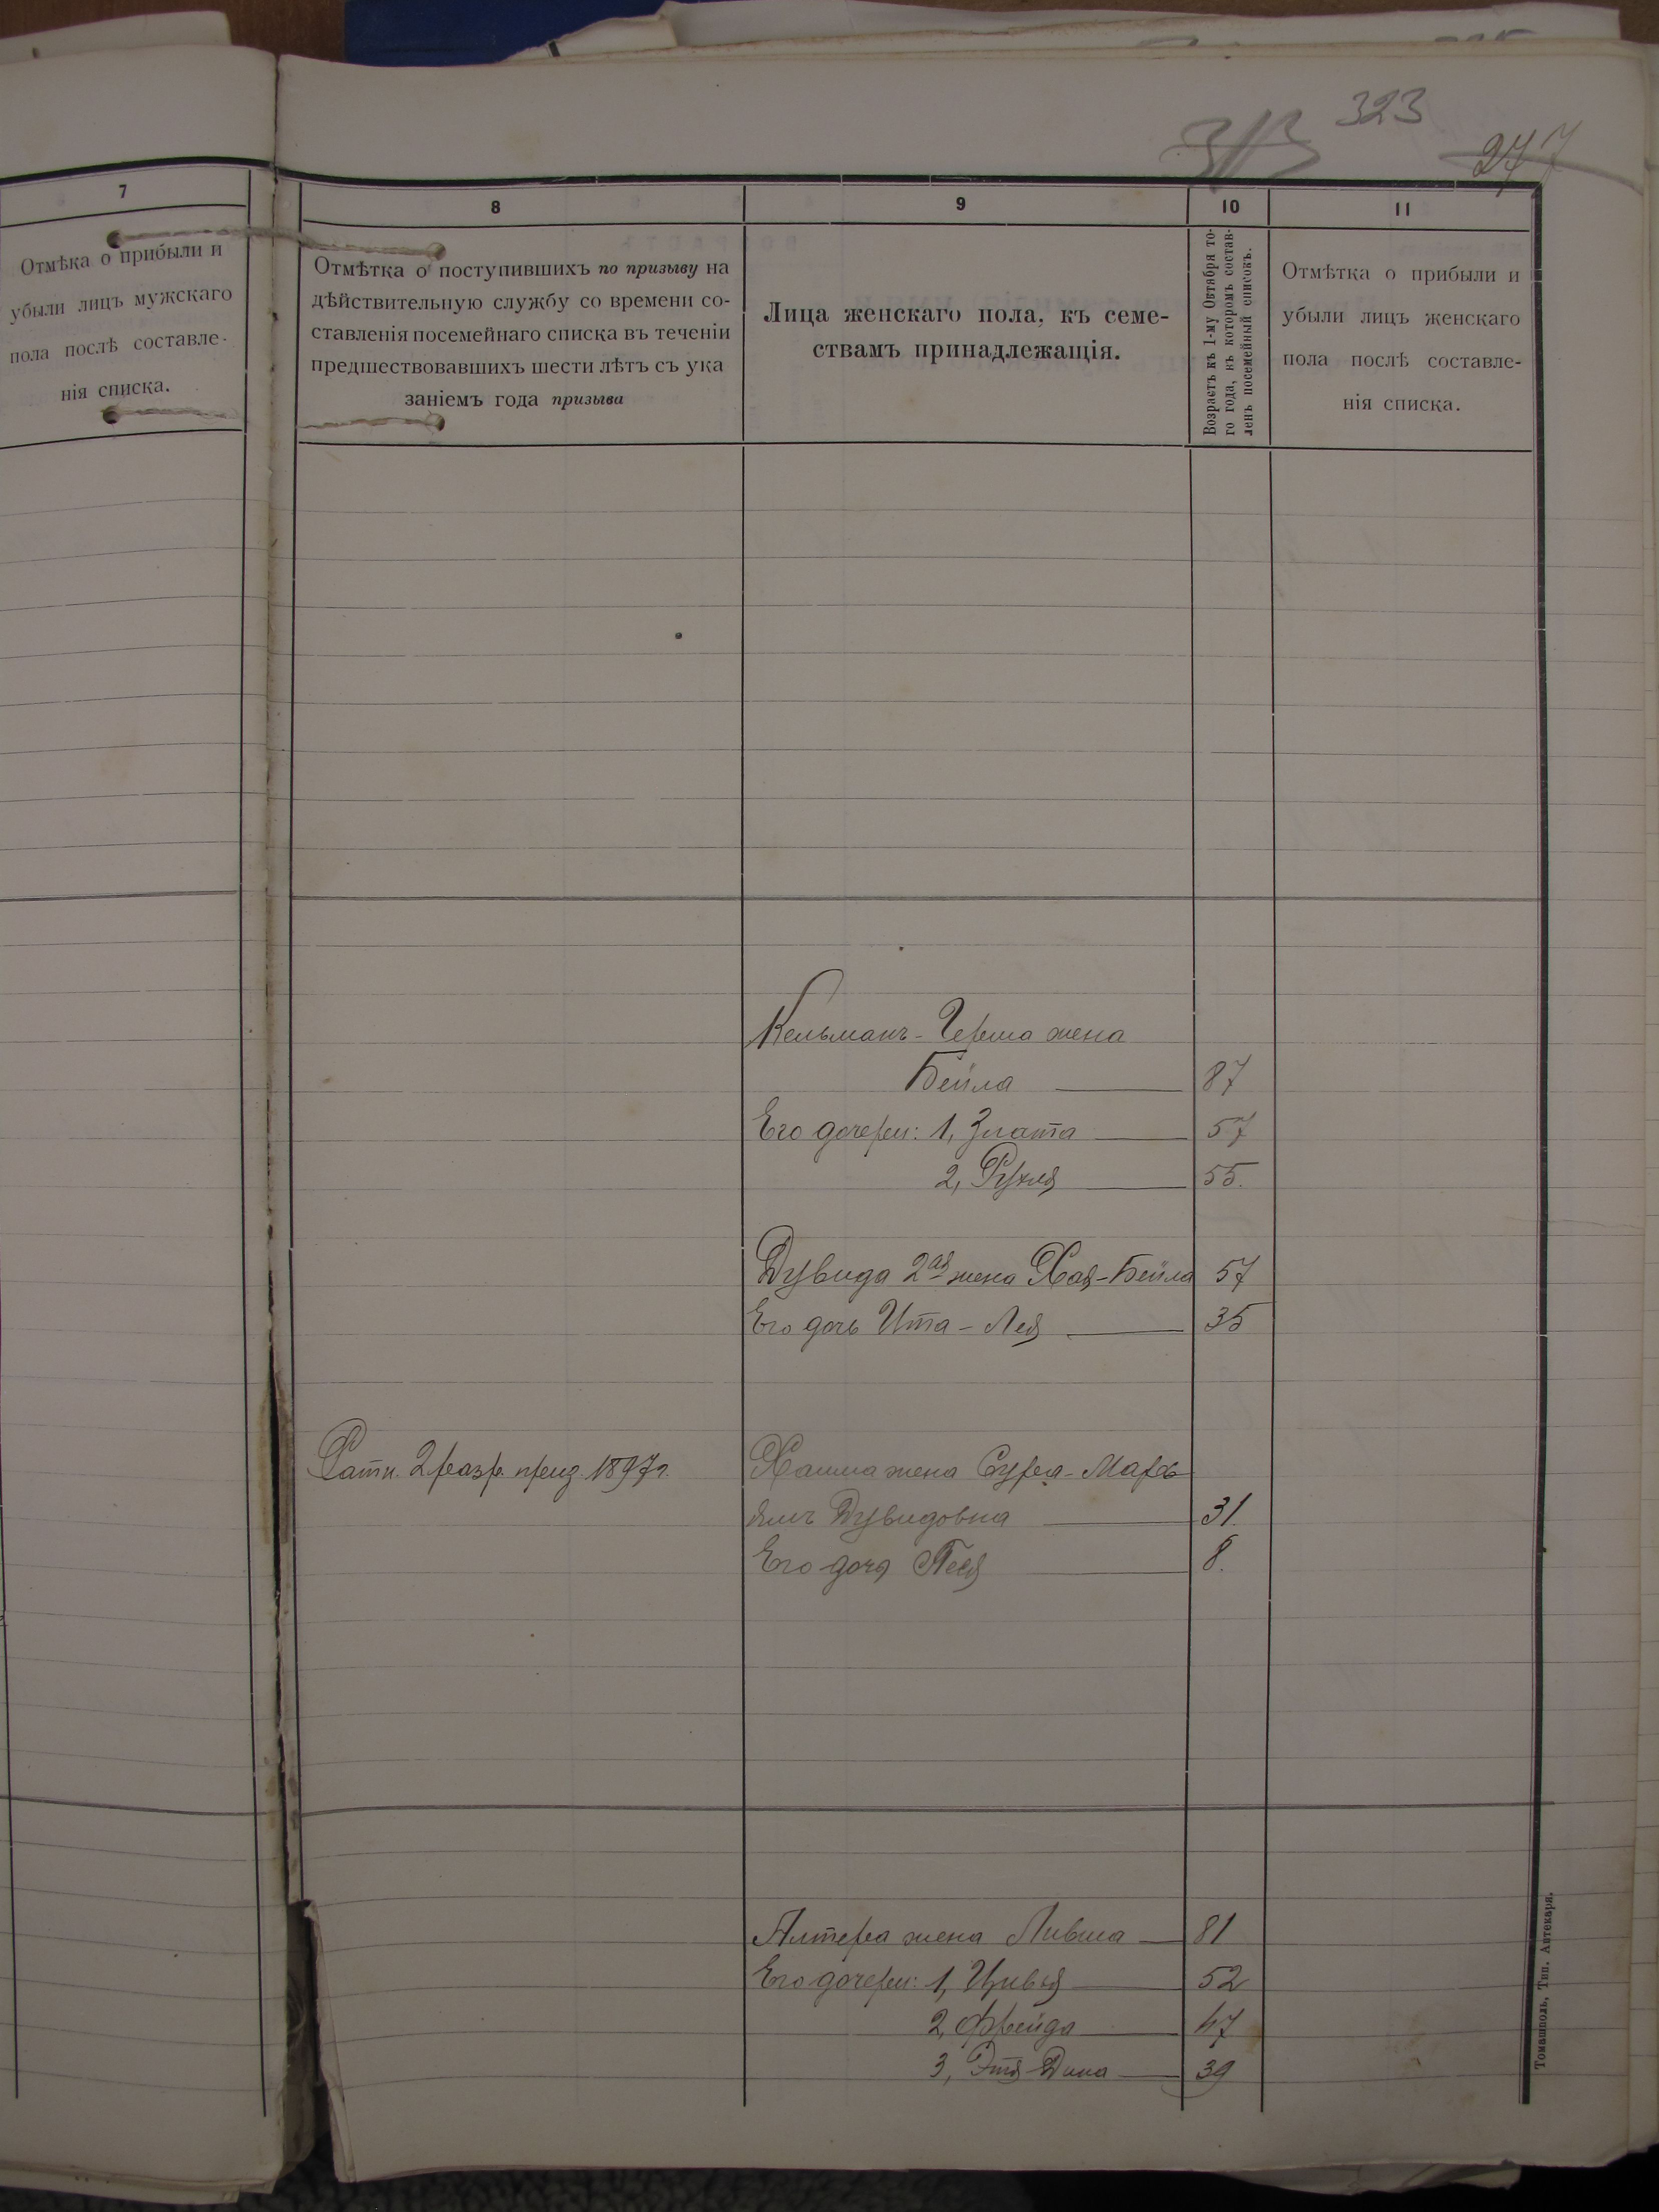 323
313
277
7
Отмѣка о прибыли и
убыли лицъ мужскаго
пола послѣ составле-
нія списка.
8
Отмѣтка о поступившихъ по призыву на
дѣйствительную службу со времени со-
ставленія посемейнаго списка въ теченіи
предшествовавшихъ шести лѣтъ съ ука
заніемъ года призыва
9
Лица женскаго пола, къ семе-
ствамъ принадлежащія.
10
Возрастъ къ 1-му Октября то-
го года, къ которомъ состав-
ленъ посемейный списокъ.
11
Отмѣтка о прибыли и
убыли лицъ женскаго
пола послѣ составле-
нія списка.
Кельманъ-Герша жена
Бейла 87
Его дочери: 1, Злата 57
2, Рухля 55.
Дувида 2ая жена Хая-Бейла 57
Его дочь Ита-Лея 35
Ратн. 2 разр. приз. 1897г. Хаима жена Сура-Марь
ямъ Дувидовна 31.
Его доча Песя 8.
Алтера жена Ливша 81
Его дочери: 1, Цивья 52
2, Фрейда 47
3, Этя-Дина 39
Томашполь, Тип. Аптекаря.